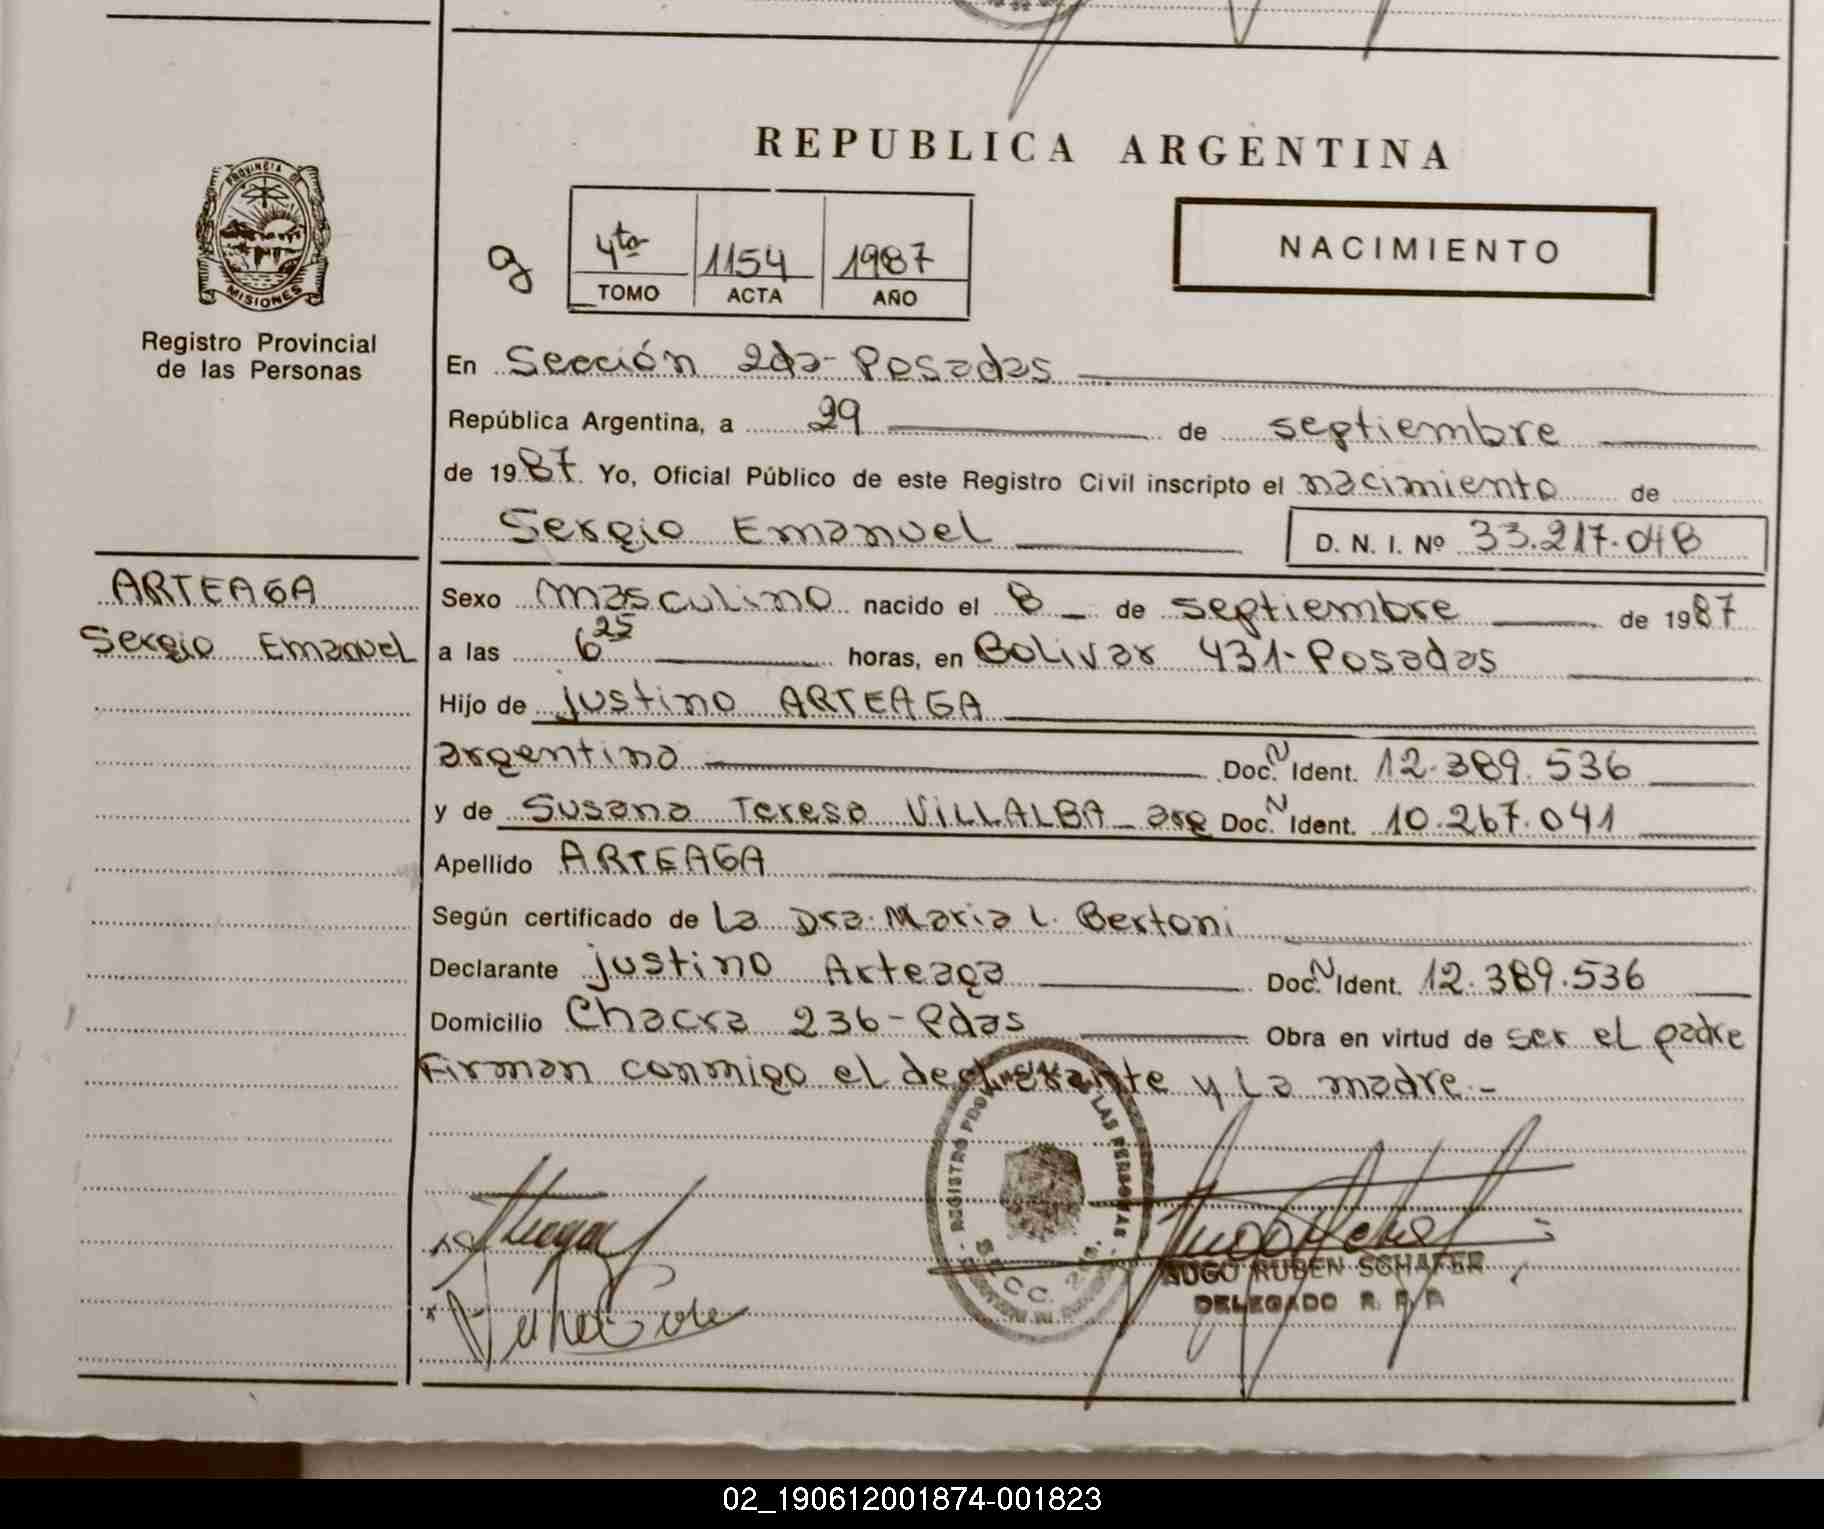 REPUBLICA ARGENTINA
PROVINCIA DE
MISIONES
Registro Provincial
de las Personas
4ta 1154 1987
TOMO ACTA AÑO
NACIMIENTO
En Sección 2da- Posadas
República Argentina, a 29 de septiembre
de 1987. Yo, Oficial Público de este Registro Civil inscripto el nacimiento de
Sergio Emanuel D. N. I. Nº 33.217.048
ARTEAGA
Sergio Emanuel
Sexo masculino nacido el 8 de septiembre de 1987
a las 6 25 horas, en Bolivar 431- Posadas
Hijo de justino ARTEAGA
argentino Doc. N Ident. 12.389.536
y de Susana Teresa VILLALBA arg Doc. N Ident. 10.267.041
Apellido ARTEAGA
Según certificado de La Dra. Maria L. Bertoni
Declarante justino Arteaga Doc. N Ident. 12.389.536
Domicilio Chacra 236- Pdas Obra en virtud de ser el padre
Firman conmigo el declarante y La madre.-
REGISTRO PROVINCIAL DE LAS PERSONAS
SECC. 2da.
HUGO RUBEN SCHAFER
DELEGADO R. P. P.
02_190612001874-001823